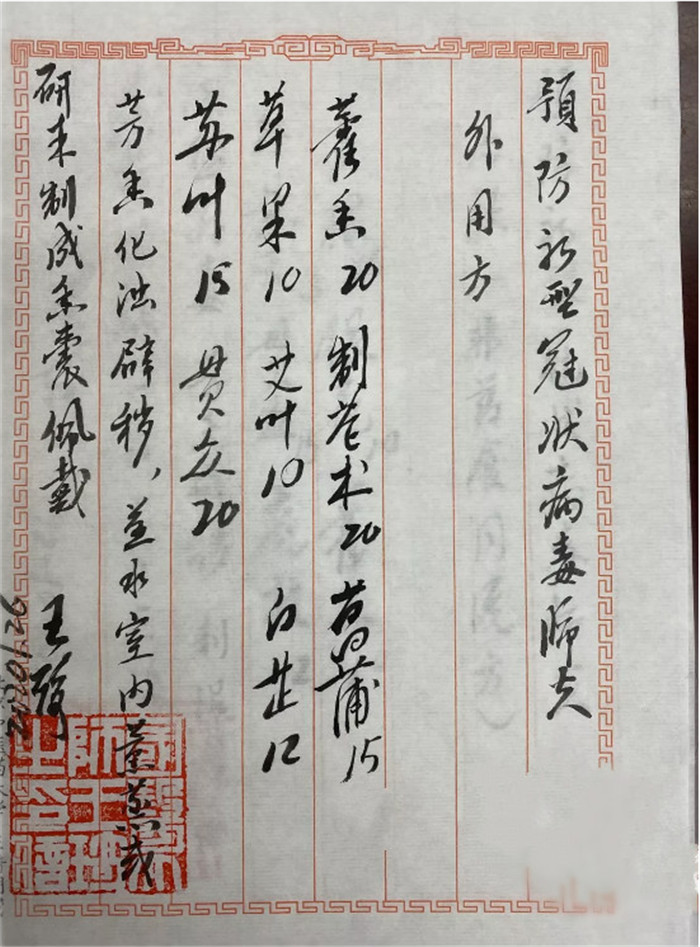 预防新型冠状病毒肺炎
外用方
藿香20 制苍术20 菖蒲15
草果10 艾叶10 白芷12
苏叶15 贯众20
芳香化浊辟秽，煮水室内熏蒸或
研末制成香囊佩戴 王琦
2020/1/26